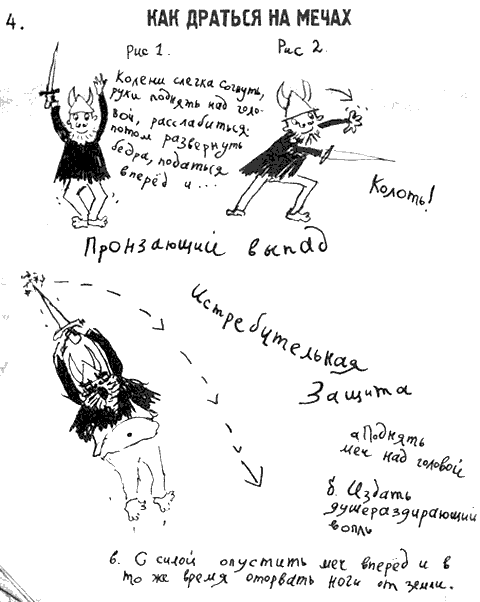 4.
КАК ДРАТЬСЯ НА МЕЧАХ
Рис 1.
Рис 2.
Колени слегка согнуть,
руки поднять над голо-
вой, расслабиться:
потом развернуть
бедра, податься
вперёд и ...
Колоть!
Пронзающий выпад
Истребительная
Защита
а Поднять
меч над головой
б. Издать
душераздирающий
вопль
в. С силой опустить меч вперёд и в
то же время оторвать ноги от земли.